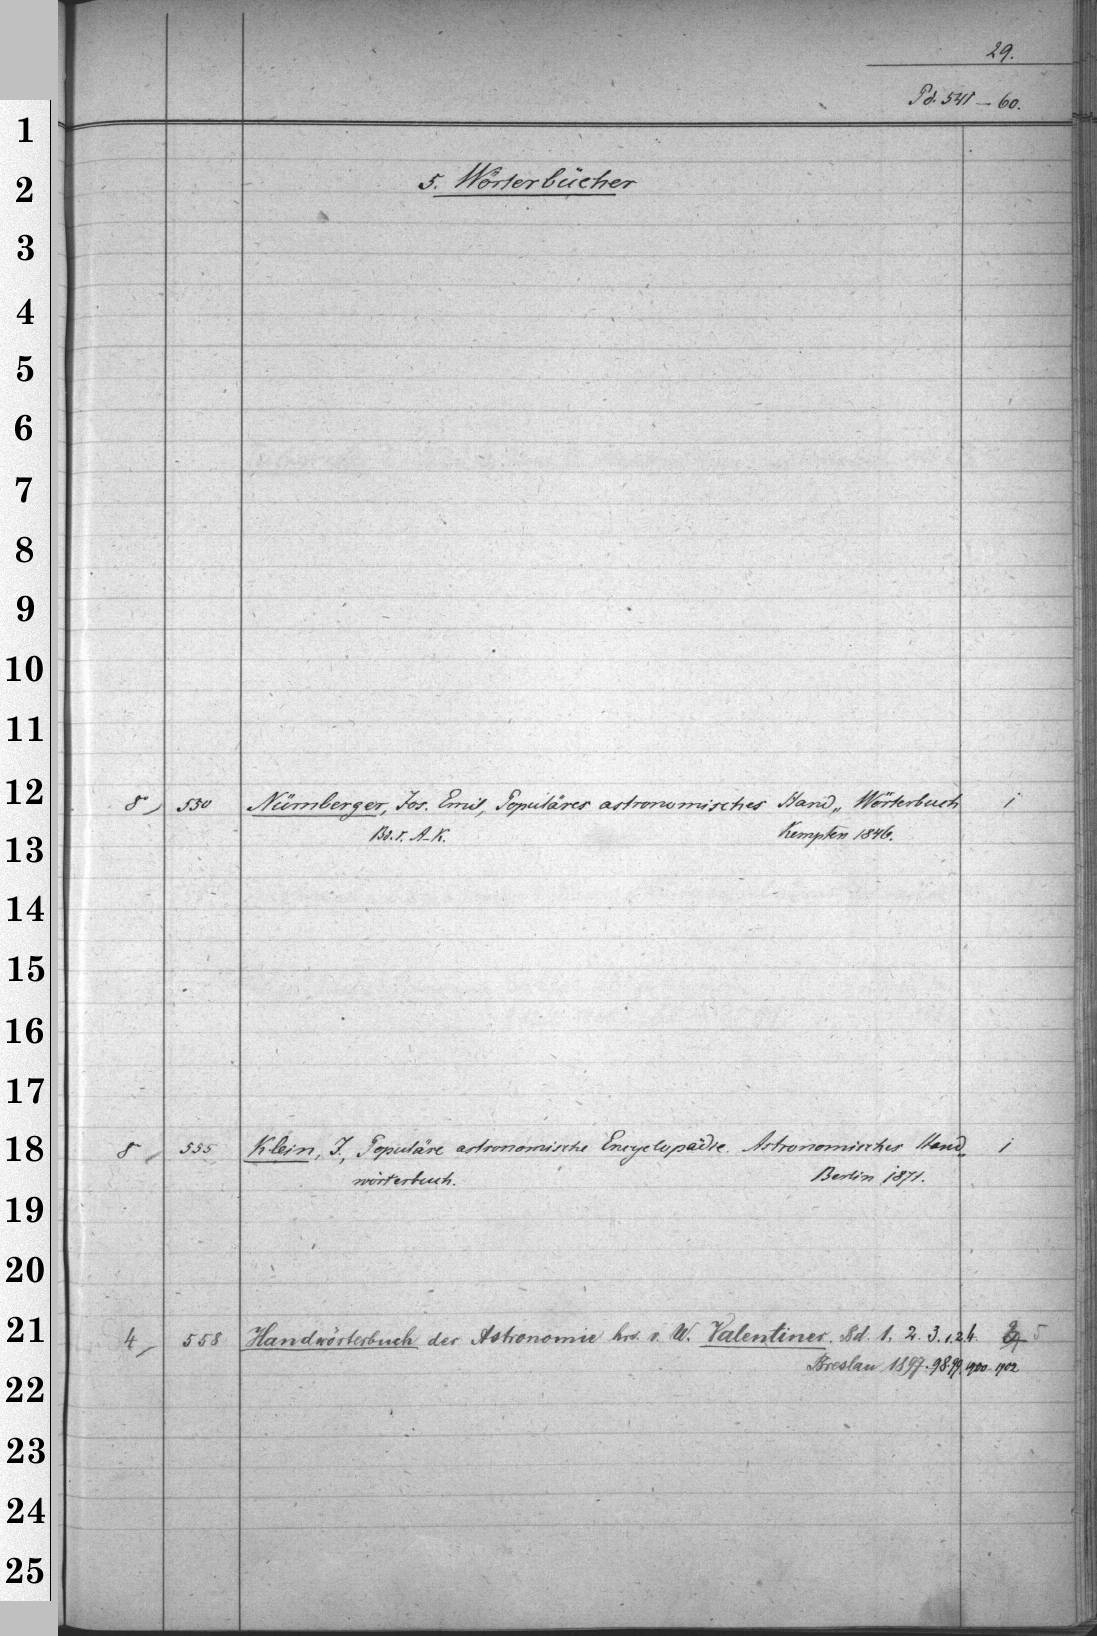 29.
Pd. 541 — 60.
5. Wörterbücher
8, 550 Nürnberger, Jos. Emil, Populäres astronomisches Hand„ Wörterbuch 1
Bd. 1. A-K. Kempten 1846.
8, 555 Klein, J., Populäre astronomische Encyclopädie. Astronomisches Hand„ 1
wörterbuch. Berlin 1871.
4, 558 Handwörterbuch der Astronomie hrs. v. W. Valentiner. Bd. 1. 2. 3.1,2 4. 5
Breslau 1897.98.99.1900-1902
1
2
3
4
5
6
7
8
9
10
11
12
13
14
15
16
17
18
19
20
21
22
23
24
25